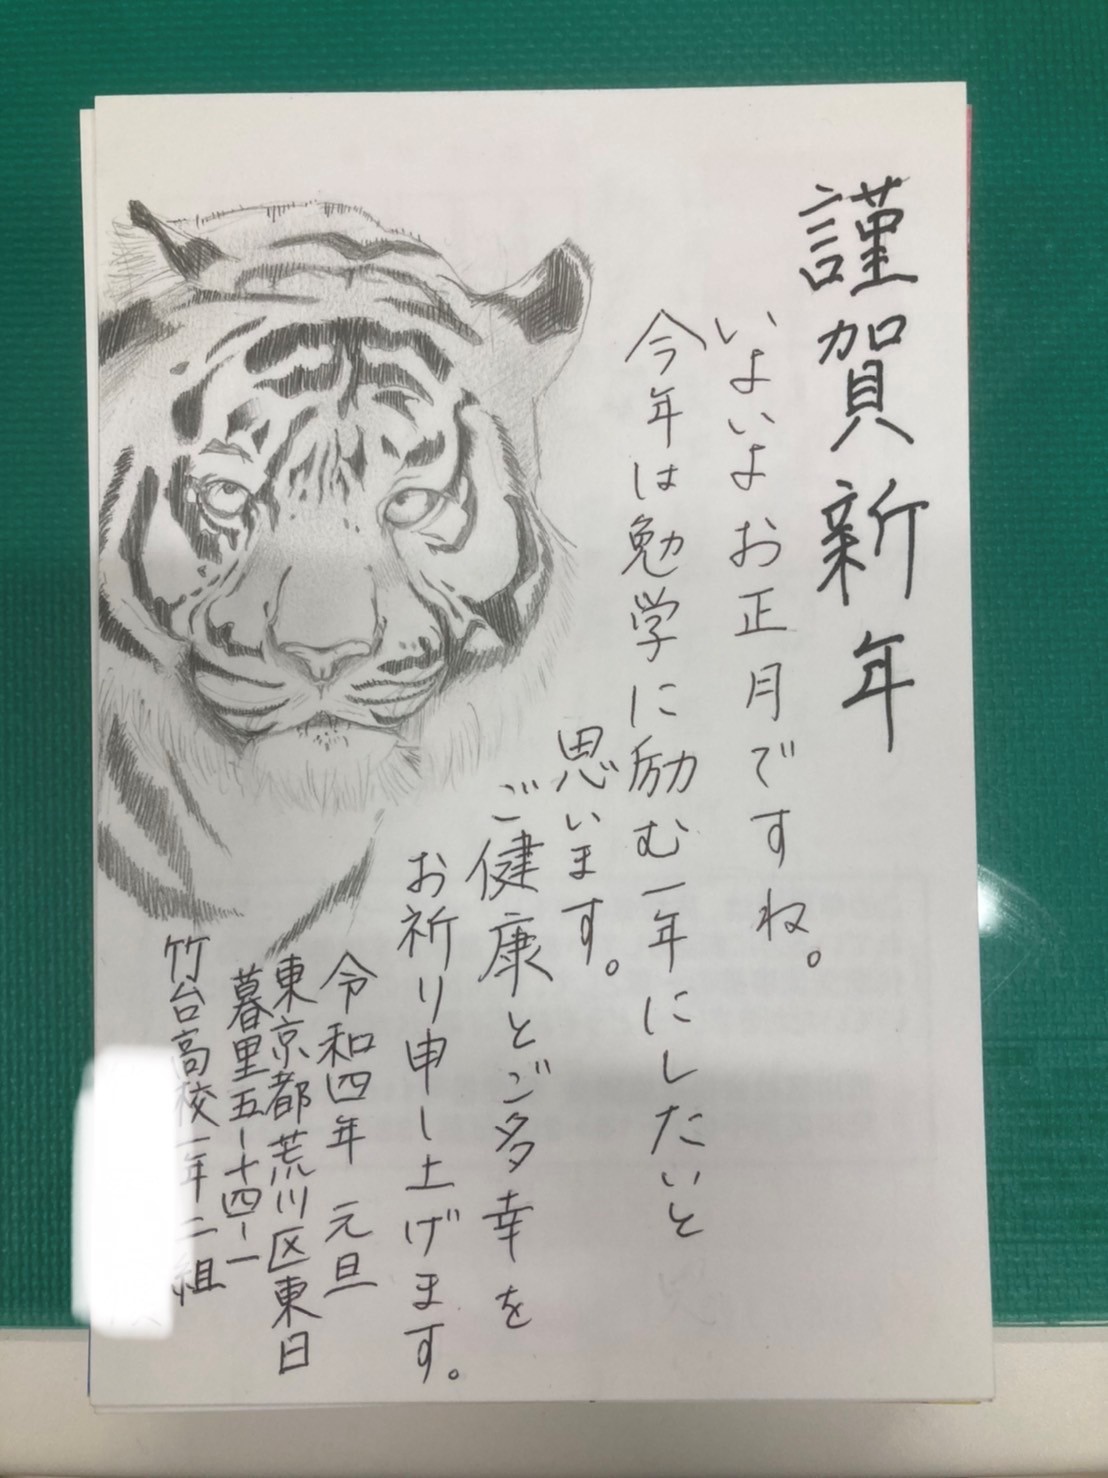 謹賀新年
いよいよお正月ですね。
今年は勉学に励む一年にしたいと
思います。
ご健康とご多幸を
お祈り申し上げます。
令和四年 元旦
東京都荒川区東日
暮里五ー十四ー一
竹台高校一年二組